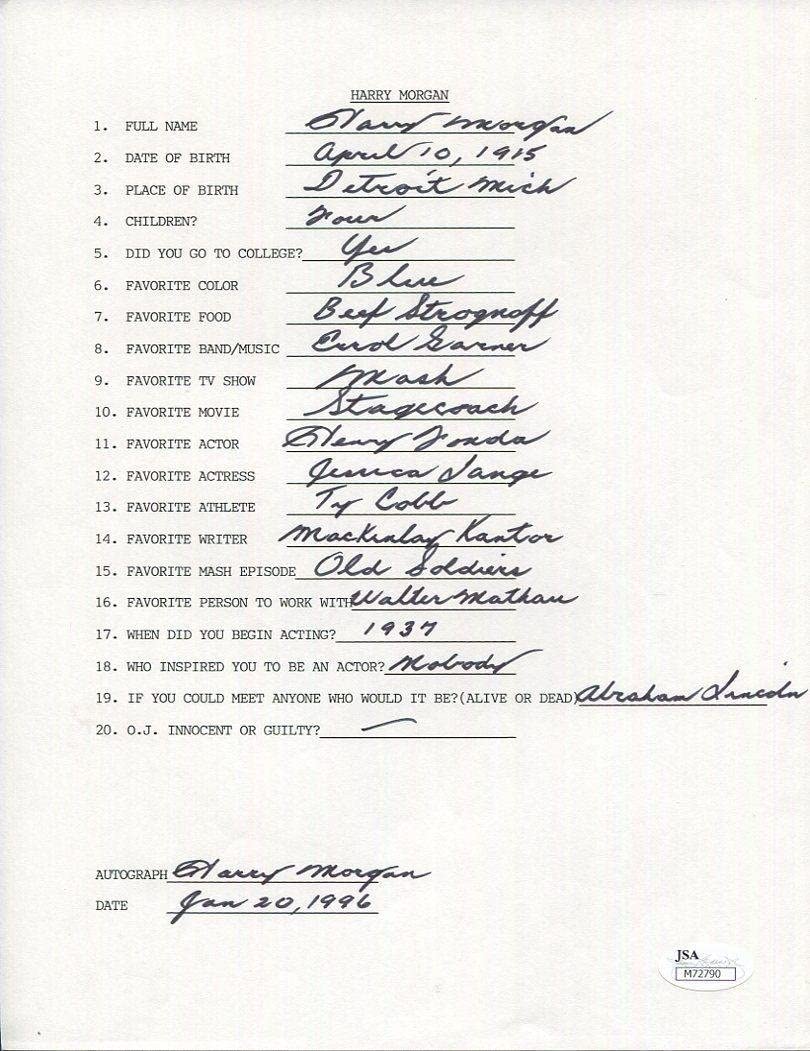 HARRY MORGAN
1. FULL NAME Harry Morgan
2. DATE OF BIRTH April 10, 1915
3. PLACE OF BIRTH Detroit Mich
4. CHILDREN? Four
5. DID YOU GO TO COLLEGE? Yes
6. FAVORITE COLOR Blue
7. FAVORITE FOOD Beef Strognoff
8. FAVORITE BAND/MUSIC Errol Garner
9. FAVORITE TV SHOW Mash
10. FAVORITE MOVIE Stagecoach
11. FAVORITE ACTOR Henry Fonda
12. FAVORITE ACTRESS Jessica Lange
13. FAVORITE ATHLETE Ty Cobb
14. FAVORITE WRITER Mackinlay Kantor
15. FAVORITE MASH EPISODE Old Soldiers
16. FAVORITE PERSON TO WORK WITH Walter Mathau
17. WHEN DID YOU BEGIN ACTING? 1937
18. WHO INSPIRED YOU TO BE AN ACTOR? Nobody
19. IF YOU COULD MEET ANYONE WHO WOULD IT BE?(ALIVE OR DEAD) Abraham Lincoln
20. O.J. INNOCENT OR GUILTY? —
AUTOGRAPH Harry Morgan
DATE Jan 20, 1996
JSA
M72790